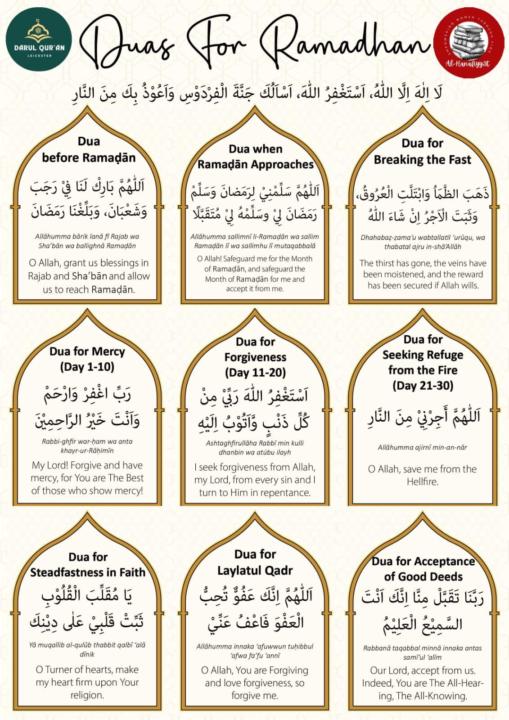 DARUL QUR'ĀN
LEICESTER
Duas For Ramadhan
Al-Hanafiyyāt
لَا اِلٰهَ اِلَّا اللهُ، اَسْتَغْفِرُ اللهَ، اَسْاَلُكَ جَنَّةَ الْفِرْدَوْسِ وَاَعُوْذُ بِكَ مِنَ النَّارِ
Dua
before Ramaḍān
اَللّٰهُمَّ بَارِكْ لَنَا فِيْ رَجَبَ
وَشَعْبَانَ، وَبَلِّغْنَا رَمَضَانَ
Allāhumma bārik lanā fī Rajab wa
Sha'bān wa ballighnā Ramaḍān
O Allah, grant us blessings in
Rajab and Sha'bān and allow
us to reach Ramaḍān.
Dua when
Ramaḍān Approaches
اَللّٰهُمَّ سَلِّمْنِيْ لِرَمَضَانَ وَسَلِّمْ
رَمَضَانَ لِيْ وسَلِّمْهُ لِيْ مُتَقَبَّلًا
Allāhumma sallimnī li-Ramaḍān wa sallim
Ramaḍān lī wa sallimhu lī mutaqabbalā
O Allah! Safeguard me for the Month
of Ramaḍān, and safeguard the
Month of Ramaḍān for me and
accept it from me.
Dua for
Breaking the Fast
ذَهَبَ الظَّمَأُ وَابْتَلَّتِ الْعُرُوْقُ،
وَثَبَتَ الْاَجْرُ اِنْ شَاءَ اللهُ
Dhahabaẓ-ẓama'u wabtallatil 'urūqu, wa
thabatal ajru in-shā'Allāh
The thirst has gone, the veins have
been moistened, and the reward
has been secured if Allah wills.
Dua for Mercy
(Day 1-10)
رَبِّ اغْفِرْ وَارْحَمْ
وَاَنْتَ خَيْرُ الرَّاحِمِيْنَ
Rabbi-ghfir war-ḥam wa anta
khayr-ur-Rāḥimīn
My Lord! Forgive and have
mercy, for You are The Best
of those who show mercy!
Dua for
Forgiveness
(Day 11-20)
اَسْتَغْفِرُ اللهَ رَبِّيْ مِنْ
كُلِّ ذَنْبٍ وَّاَتُوْبُ اِلَيْهِ
Ashtaghfirullāha Rabbī min kulli
dhanbin wa atūbu ilayh
I seek forgiveness from Allah,
my Lord, from every sin and I
turn to Him in repentance.
Dua for
Seeking Refuge
from the Fire
(Day 21-30)
اَللّٰهُمَّ أَجِرْنِيْ مِنَ النَّارِ
Allāhumma ajirnī min-an-nār
O Allah, save me from the
Hellfire.
Dua for
Steadfastness in Faith
يَا مُقَلِّبَ الْقُلُوْبِ
ثَبِّتْ قَلْبِيْ عَلٰى دِيْنِكَ
Yā muqallib al-qulūb thabbit qalbī 'alā
dīnik
O Turner of hearts, make
my heart firm upon Your
religion.
Dua for
Laylatul Qadr
اَللّٰهُمَّ اِنَّكَ عَفُوٌّ تُحِبُّ
الْعَفْوَ فَاعْفُ عَنِّيْ
Allāhumma innaka 'afuwwun tuḥibbul
'afwa fa'fu 'annī
O Allah, You are Forgiving
and love forgiveness, so
forgive me.
Dua for Acceptance
of Good Deeds
رَبَّنَا تَقَبَّلْ مِنَّا اِنَّكَ اَنْتَ
السَّمِيْعُ الْعَلِيْمُ
Rabbanā taqabbal minnā innaka antas
samī'ul 'alīm
Our Lord, accept from us.
Indeed, You are The All-Hear-
ing, The All-Knowing.